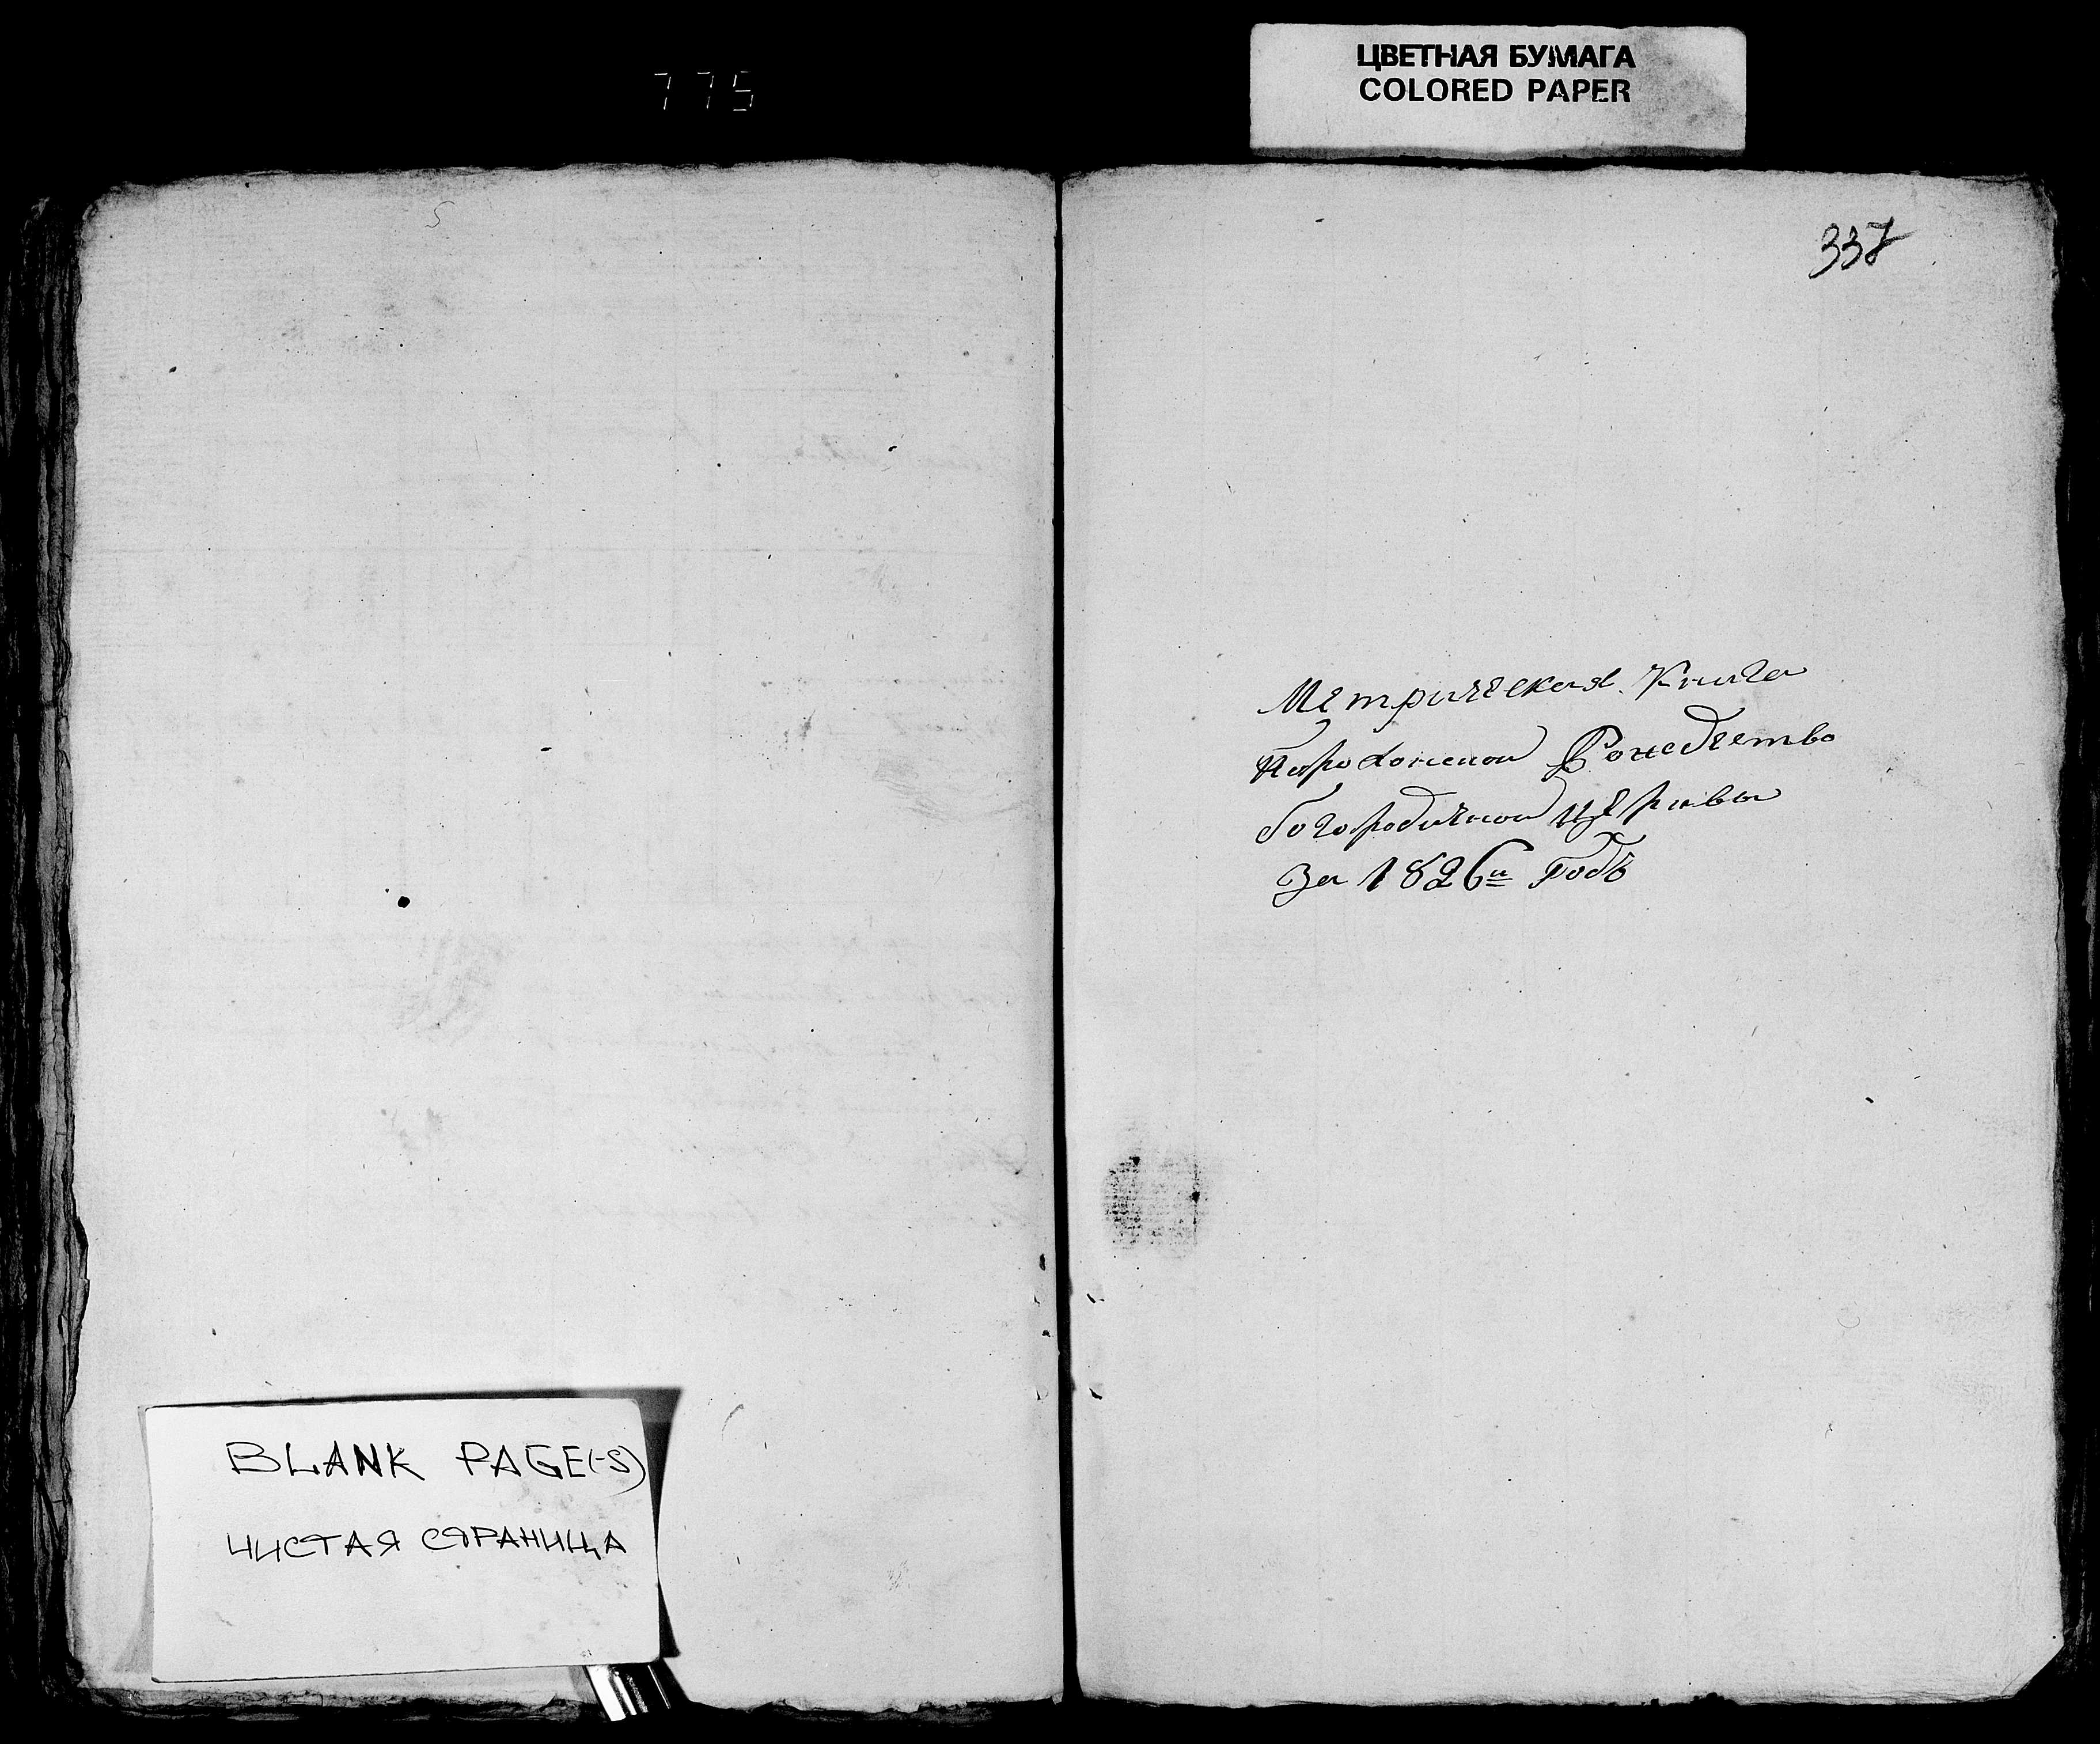 775
ЦВЕТНАЯ БУМАГА
COLORED PAPER
337
Метрическая Книга
Рожедчетво
богородичной церквы
За 1826й Годъ
BLANK PAGE(-S)
ЧИСТАЯ СТРАНИЦА